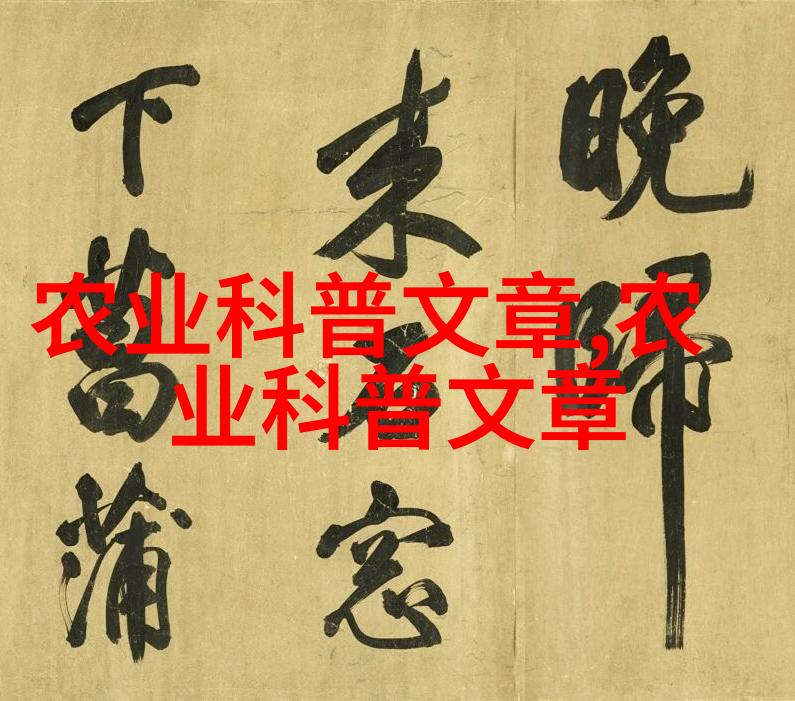 农业科普文章,农
业科普文章
晚歸
来石窓
下菖蒲